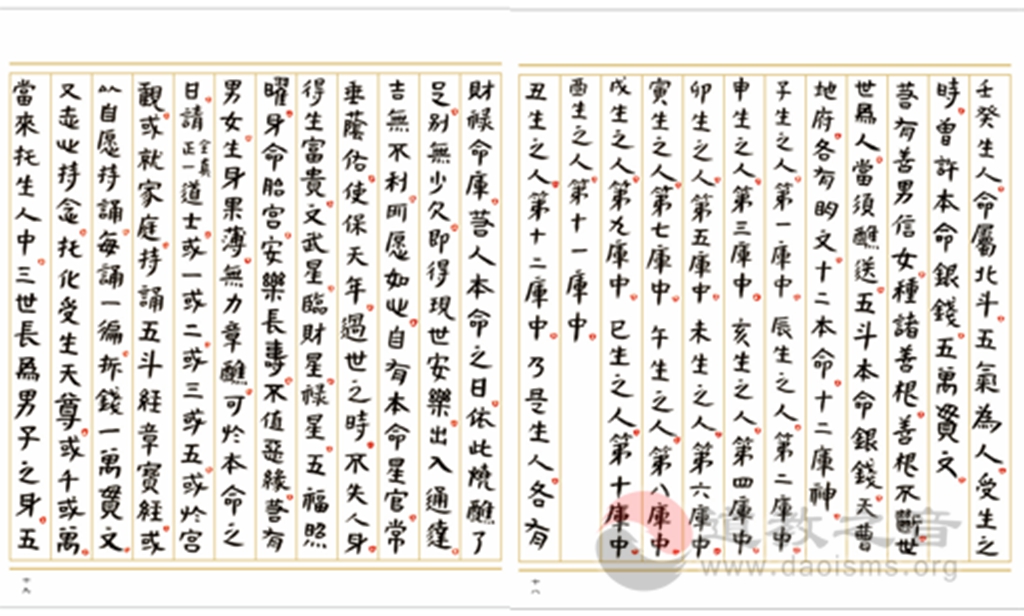 壬癸生人命屬北斗五氣為人受生之
時曾許本命銀錢五萬貫文
若有善男信女種諸善根善根不斷世
世爲人當須醮送五斗本命銀錢天曹
地府各有明文十二本命十二庫神
子生之人第一庫中 辰生之人第二庫中
申生之人第三庫中 亥生之人第四庫中
卯生之人第五庫中 未生之人第六庫中
寅生之人第七庫中 午生之人第八庫中
戌生之人第九庫中 巳生之人第十庫中
酉生之人第十一庫中
丑生之人第十二庫中 乃是生人各有
十八
財祿命庫若人本命之日依此燒醮了
足別無少欠即得現世安樂出入通達
吉無不利所愿如此自有本命星官常
垂蔭佑使保天年過世之時不失人身
得生富貴文武星臨財星祿星五福照
曜身命胎宮安樂長壽不值惡緣若有
男女生身果薄無力章醮可於本命之
日請全真正一道士或一或二或三或五或於宮
觀或就家庭持誦五斗經章寶經或
以自愿持誦每誦一徧折錢一萬貫文
又志心持念托化受生天尊或千或萬
當來托生人中三世長爲男子之身五
十九
道教之音
www.daoisms.org